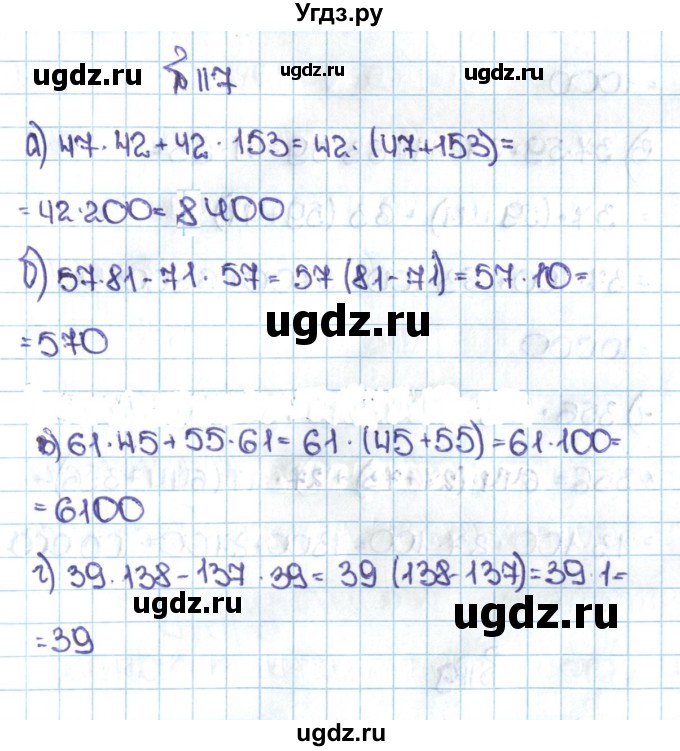 Угдз.ру
ugdz.ru № 117 ugdz.ru ugdz.ru
а) 47·42+42·153=42·(47+153)=
=42·200=8400
б) 57·81-71·57=57(81-71)=57·10=
ugdz.ru
=570
ugdz.ru
в) 61·45+55·61=61·(45+55)=61·100=
=6100
г) 39·138-137·39=39(138-137)=39·1=
ugdz.ru ugdz.ru
=39
ugdz.ru